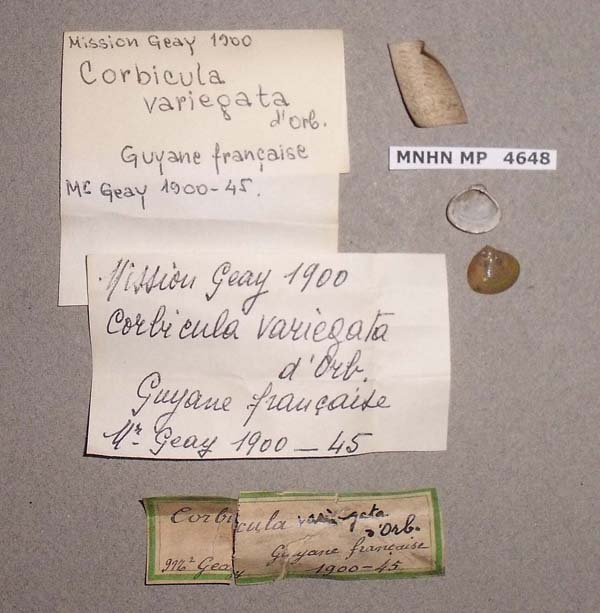 Mission Geay 1900
Corbicula
variegata
d'Orb.
Guyane française
Mr Geay 1900-45.
MNHN MP 4648
Mission Geay 1900
Corbicula variegata
d'Orb.
Guyane française
Mr. Geay 1900-45
Corbicula variegata
d'Orb.
Guyane française
Mr Geay 1900-45